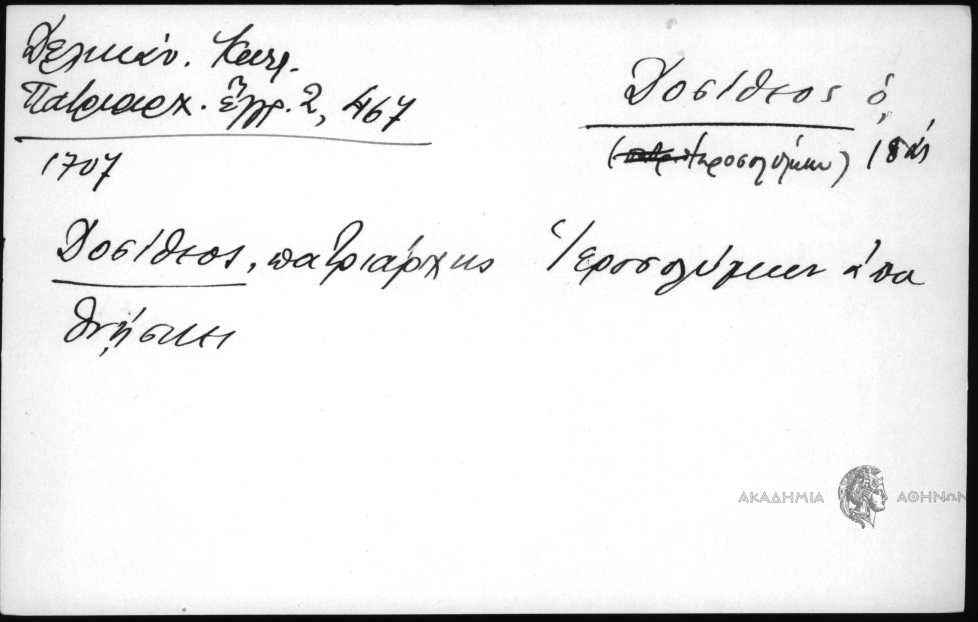 Δελικάν. Καλλ.
Πατριαρχ. ἔγγρ. 2, 467
1707
Δοσίθεος ὁ,
Ἱεροσολύμων) 18ος
Δοσίθεος, πατριάρχης Ἱεροσολύμων ἀπο
θνήσκει
ΑΚΑΔΗΜΙΑ ΑΘΗΝΩΝ